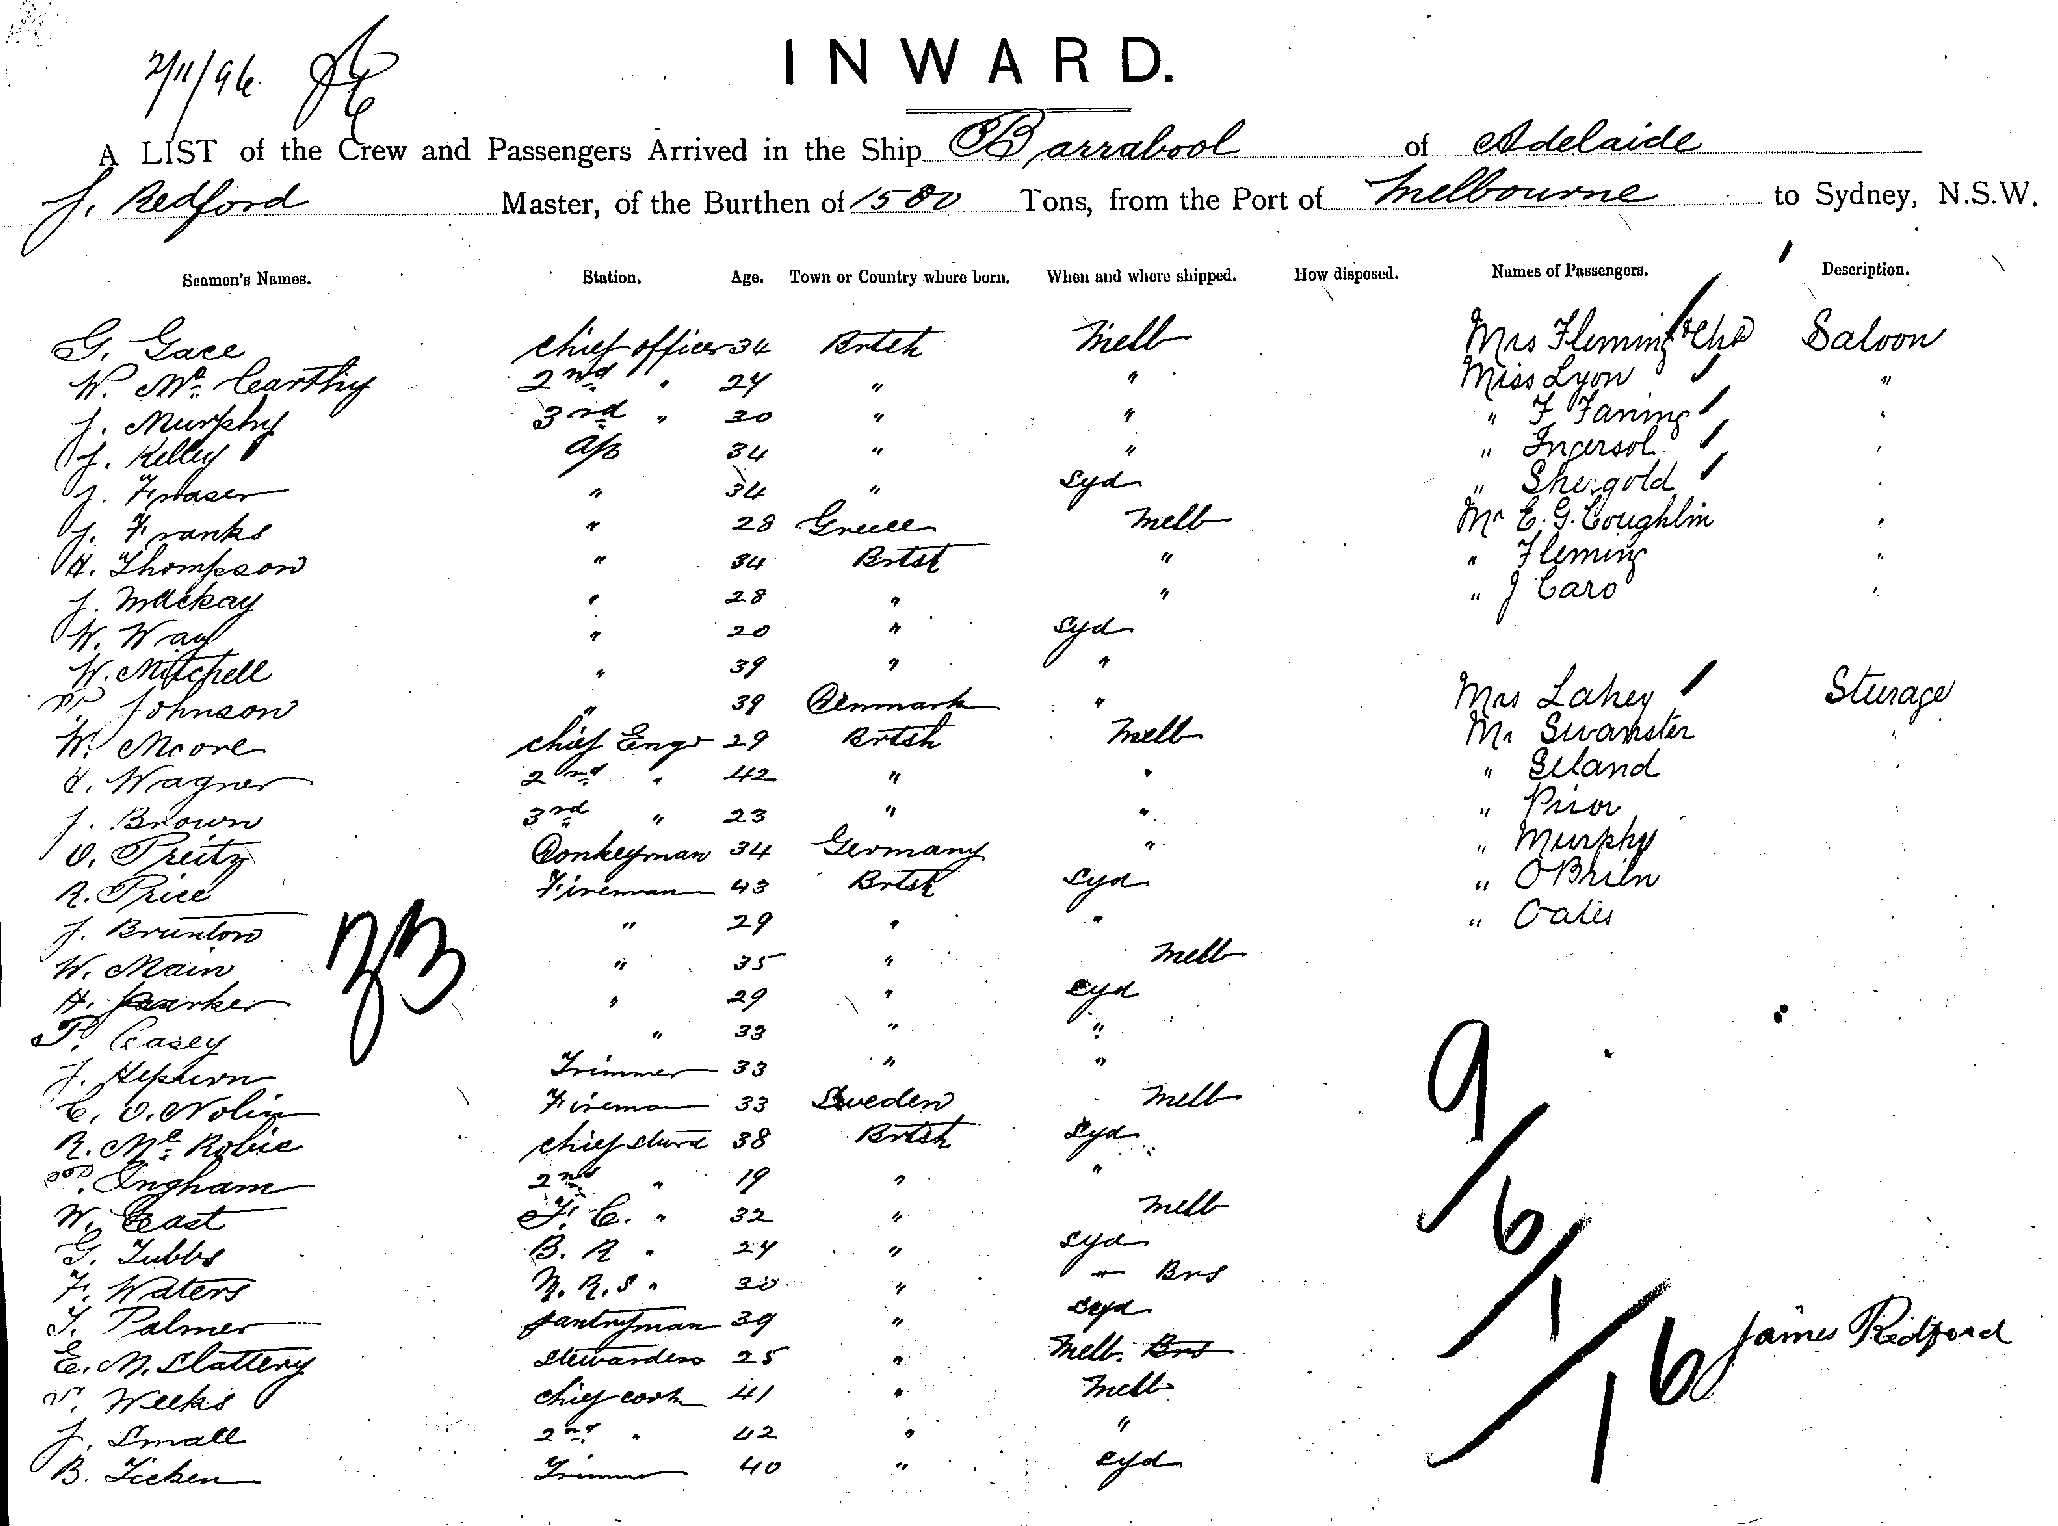 2/11/96.
INWARD.
A LIST of the Crew and Passengers Arrived in the Ship Barrabool of Adelaide
J. Redford Master, of the Burthen of 1580 Tons, from the Port of Melbourne to Sydney, N.S.W.
Seamen's Names. Station. Age. Town or Country where born. When and where shipped. How disposed. Names of Passengers. Description.
G. Gace chief officer 34 Brtsh Melb Mrs Fleming & Chd Saloon
W. Mc Carthy 2nd " 24 " " Miss Lyon "
J. Murphy 3rd " 30 " " " F Faning "
J. Kelley A/B 34 " " " Ingersol "
J. Fraser " 34 " Syd " Shergold "
J. Franks " 28 Greece Melb Mr E. G. Coughlin "
A. Thompson " 34 Brtsh " " Fleming "
J. Mackay " 28 " " " J Caro "
W. Way " 20 " Syd
W. Mitchell " 39 " "
Johnson " 39 Denmark " Mrs Lahey Steerage
W. Moore Chief Engr 29 Brtsh Melb Mr Swamster "
A. Wagner 2nd " 42 " " " Seland
J. Brown 3rd " 23 " " " Prior
O. Preitz Donkeyman 34 Germany " " Murphy
R. Price Fireman 43 Brtsh Syd " O'Brien
J. Brunton " 29 " " " Oates
W. Main " 35 " Melb
33
H. Parker " 29 " Syd
P. Casey " 33 " "
J. Hepburn Trimmer 33 " "
C. O. Nolin Fireman 33 Sweden Melb
R. Mc Robie chief stwrd 38 Brtsh Syd
Ingham 2nd " 19 " "
W. East F. C. " 32 " Melb
G. Tubbs B. R " 24 " Syd
F. Waters M. R. S " 30 " " Brs
T. Palmer pantryman 39 " Syd
E. M. Slattery Stewardess 25 " Melb. Brs
Weeks chief cook 41 " Melb
J. Small 2nd " 42 " "
B. Ticken Trimmer 40 " Syd
9/6/1/16
James Redford